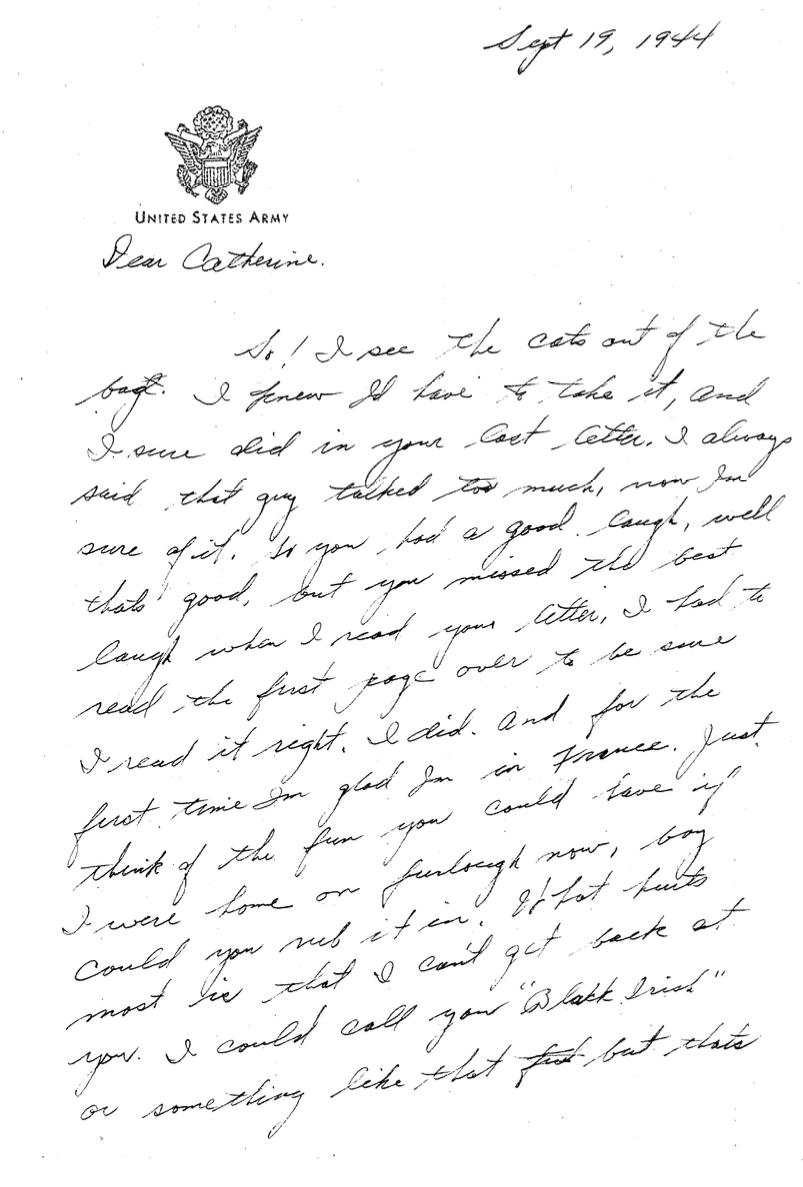 Sept 19, 1944
UNITED STATES ARMY
Dear Catherine.
So! I see the cats out of the
bag. I knew Id have to take it, and
I sure did in your last letter. I always
said that guy talked too much, now Im
sure of it. So you had a good laugh, well
thats good, but you missed the best
laugh when I read your letter, I had to
read the first page over to be sure
I read it right. I did. And for the
first time Im glad Im in France. Just
think of the fun you could have if
I were home on furlough now, boy
could you rub it in. What hurts
most is that I cant get back at
you. I could call you "Black Irish"
or something like that but thats